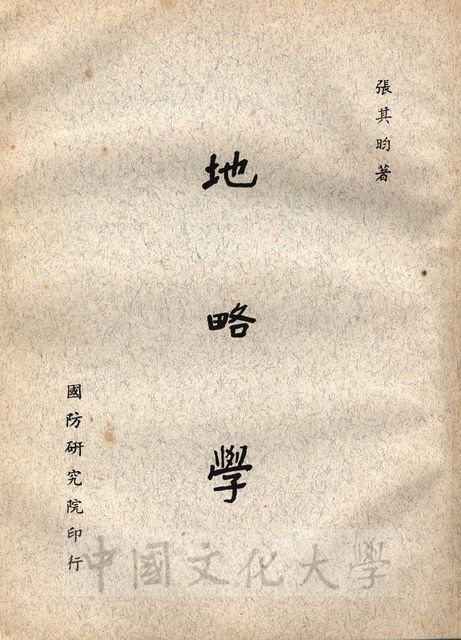 張其昀著
地略學
國防研究院印行
中國文化大學